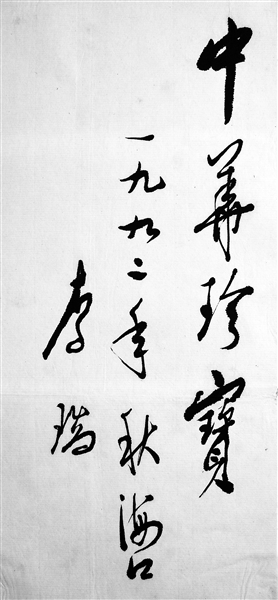 中華珍寶
一九九二年秋海口
李瑞